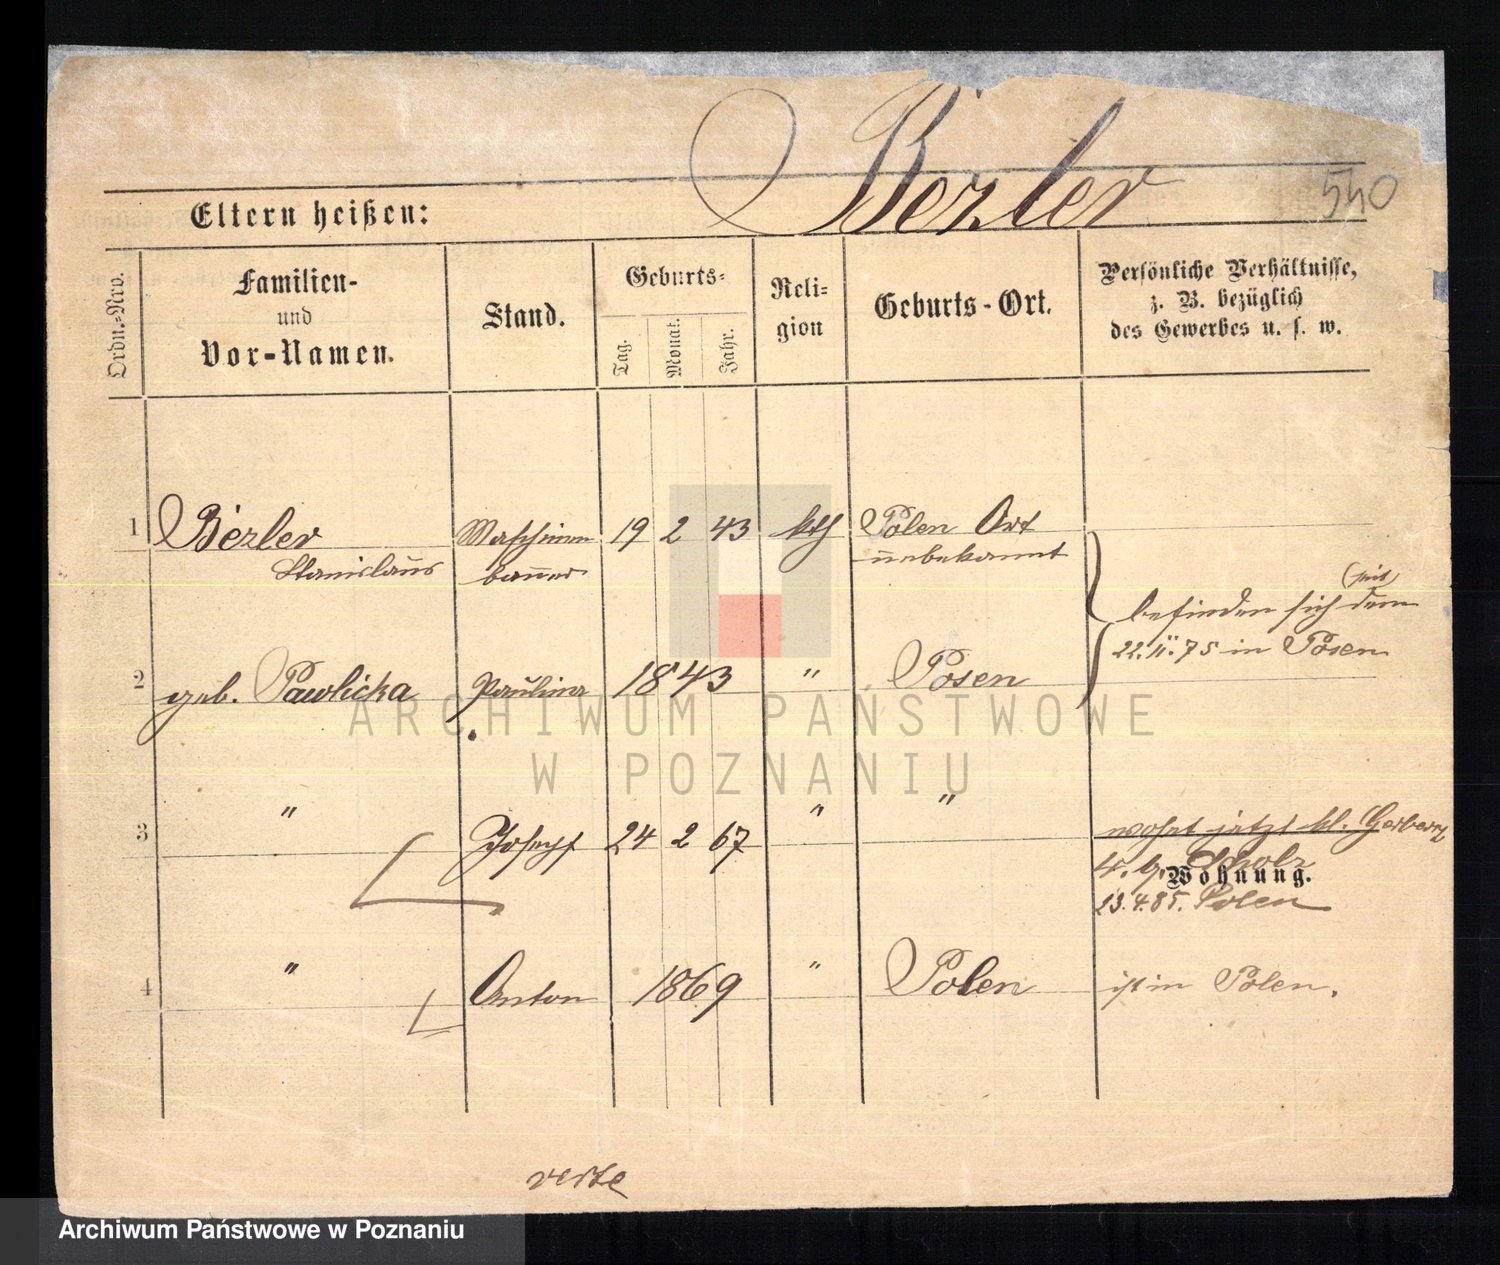 Bezler
540
Eltern heißen:
Ordn.-Nro.
Familien-
und
Vor-Namen.
Stand.
Geburts-
Tag.
Monat.
Jahr.
Reli-
gion
Geburts-Ort.
Persönliche Verhältnisse,
z. B. bezüglich
des Gewerbes u. s. w.
1 Bezler Maschinen 19 2 43 kth Polen Ort
Stanislaus bauer unbekannt
(seit)
befinden sich dem
22. 11. 75 in Posen
2 geb. Pawlicka Paulina 1843 " Posen
3 " Joseph 24 2 67 " "
wohnt jetzt kl. Gerberg
Wohnung.
13.4.85. Polen
4 " Anton 1869 " Polen ist in Polen.
verte
ARCHIWUM PAŃSTWOWE
W POZNANIU
Archiwum Państwowe w Poznaniu